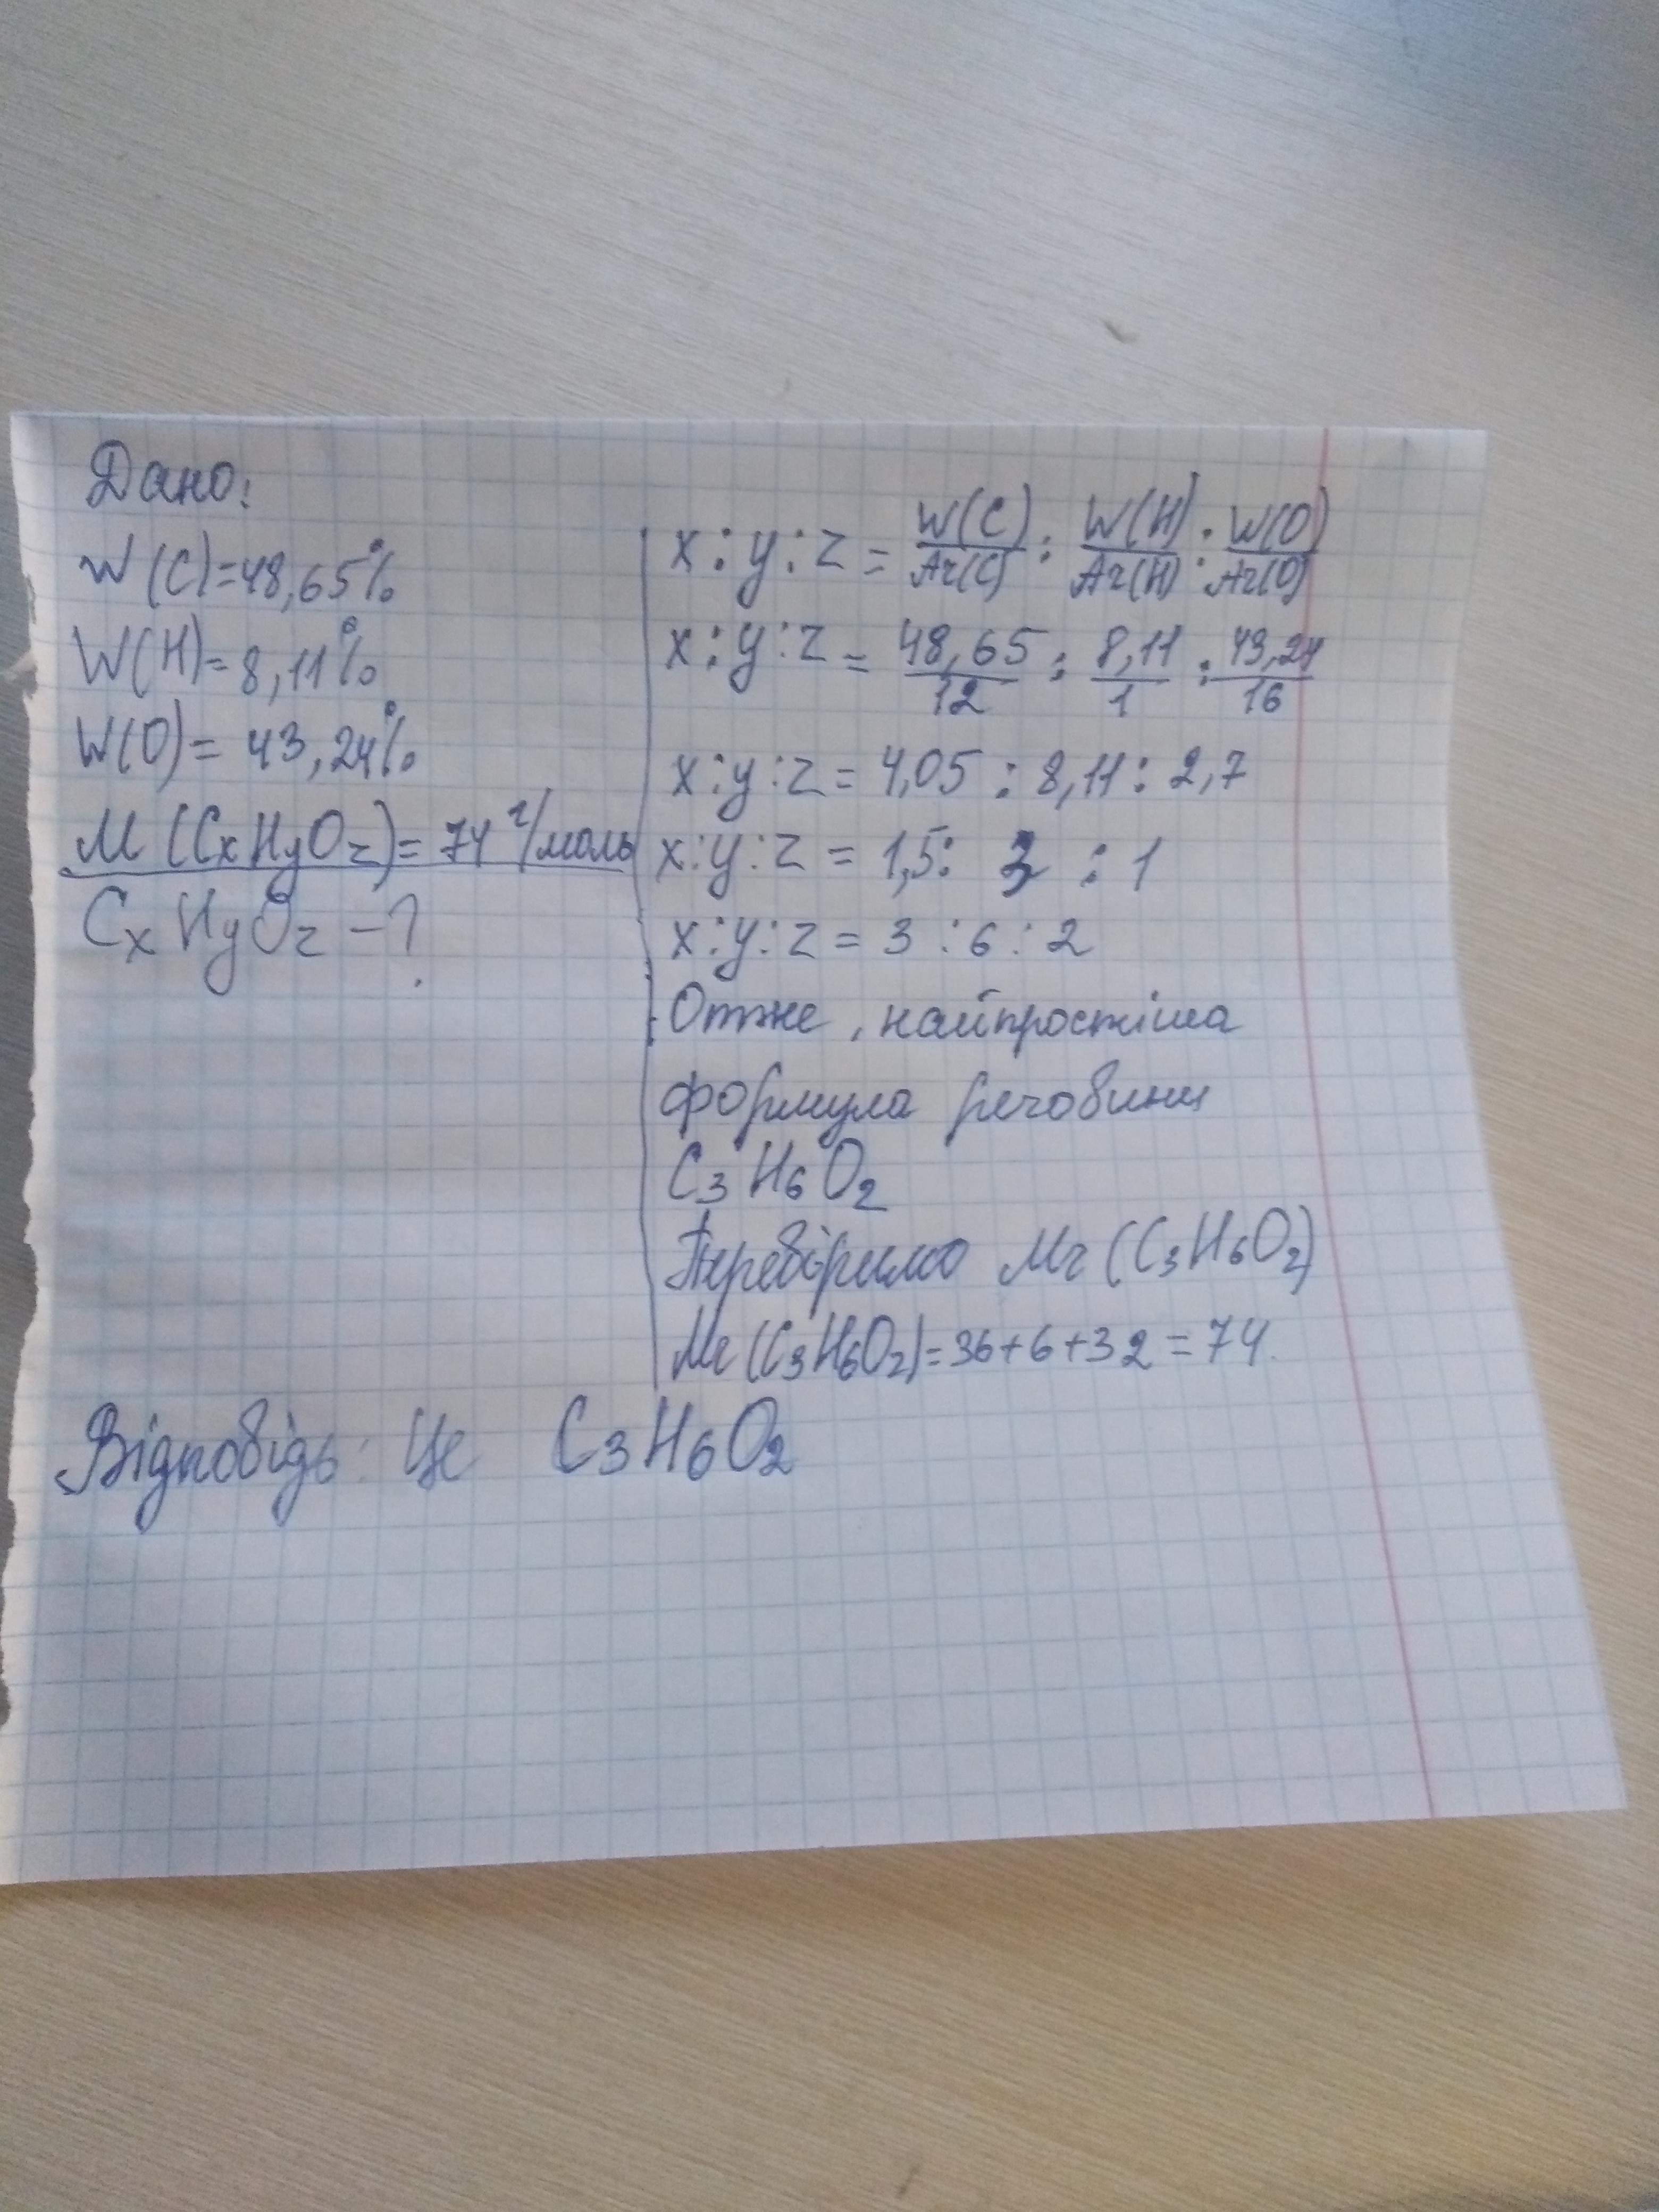 Дано:
W(C)=48,65%
W(H)=8,11%
W(O)= 43,24%
M(CxHyOz)=74 г/моль
CxHyOz -?
x:y:z = W(C)/Ar(C) : W(H)/Ar(H) : W(O)/Ar(O)
x:y:z = 48,65/12 : 8,11/1 : 43,24/16
x:y:z = 4,05 : 8,11 : 2,7
x:y:z = 1,5: 3 : 1
x:y:z = 3 : 6 : 2
Отже, найпростіша
формула речовини
C3H6O2
Перевіримо Mr(C3H6O2)
Mr(C3H6O2)=36+6+32=74.
Відповідь: Це C3H6O2